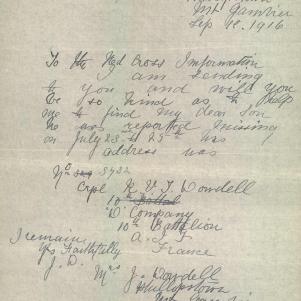 Mt Gambier
Sep 12. 1916
To the Red Cross Information
I am sending
to you and will you
be so kind as to help
me to find my dear son
he was reported missing
on July 23rd & 25th was
address was
No 3432
Crpl R V T Dowdell
10th
"D" Company
10th Battalion
A. I. F
France
I remain
Yrs Faithfully
J. D.
Mrs J. Dowdell
Phillipstown